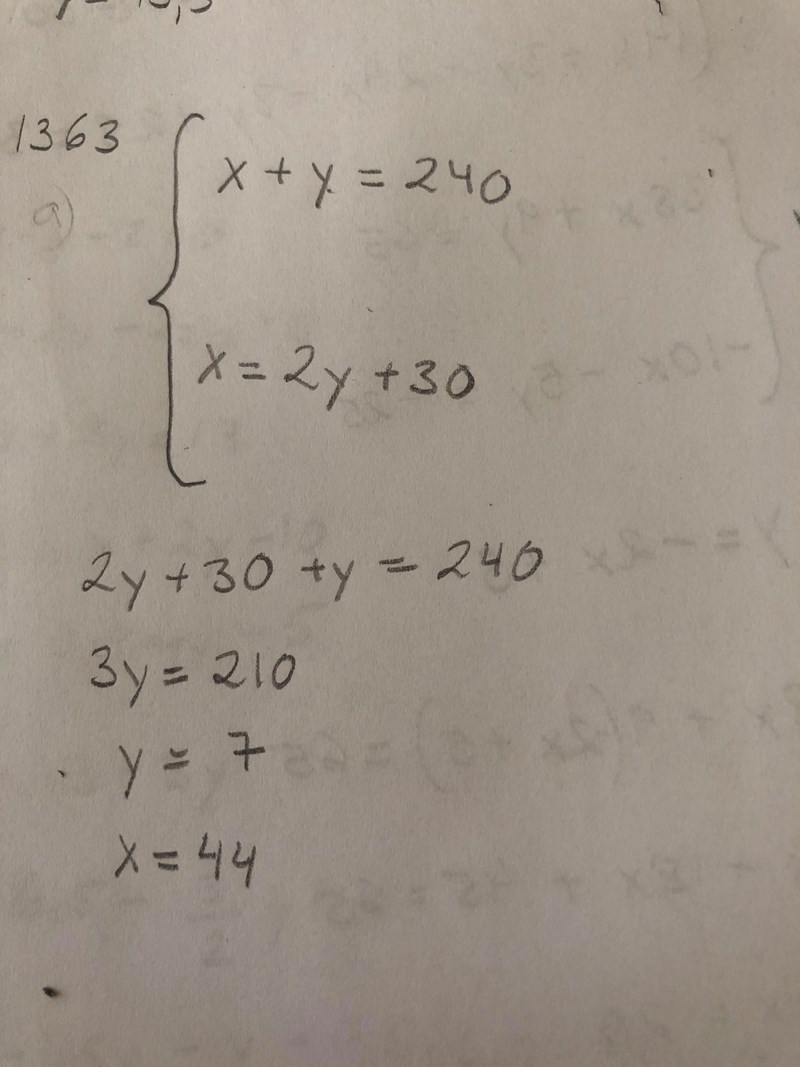 1363
a)
x + y = 240
x = 2y + 30
2y + 30 + y = 240
3y = 210
y = 7
x = 44